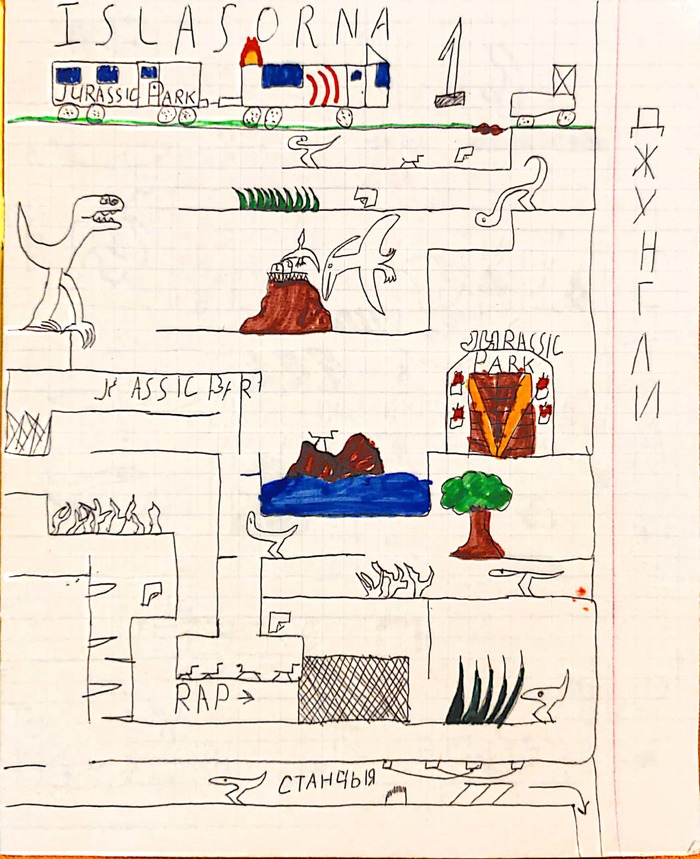 ISLASORNA
1
JURASSIC PARK
ДЖУНГЛИ
JURASSIC
PARK
ASSIC PARK
RAP →
СТАНЦЫЯ